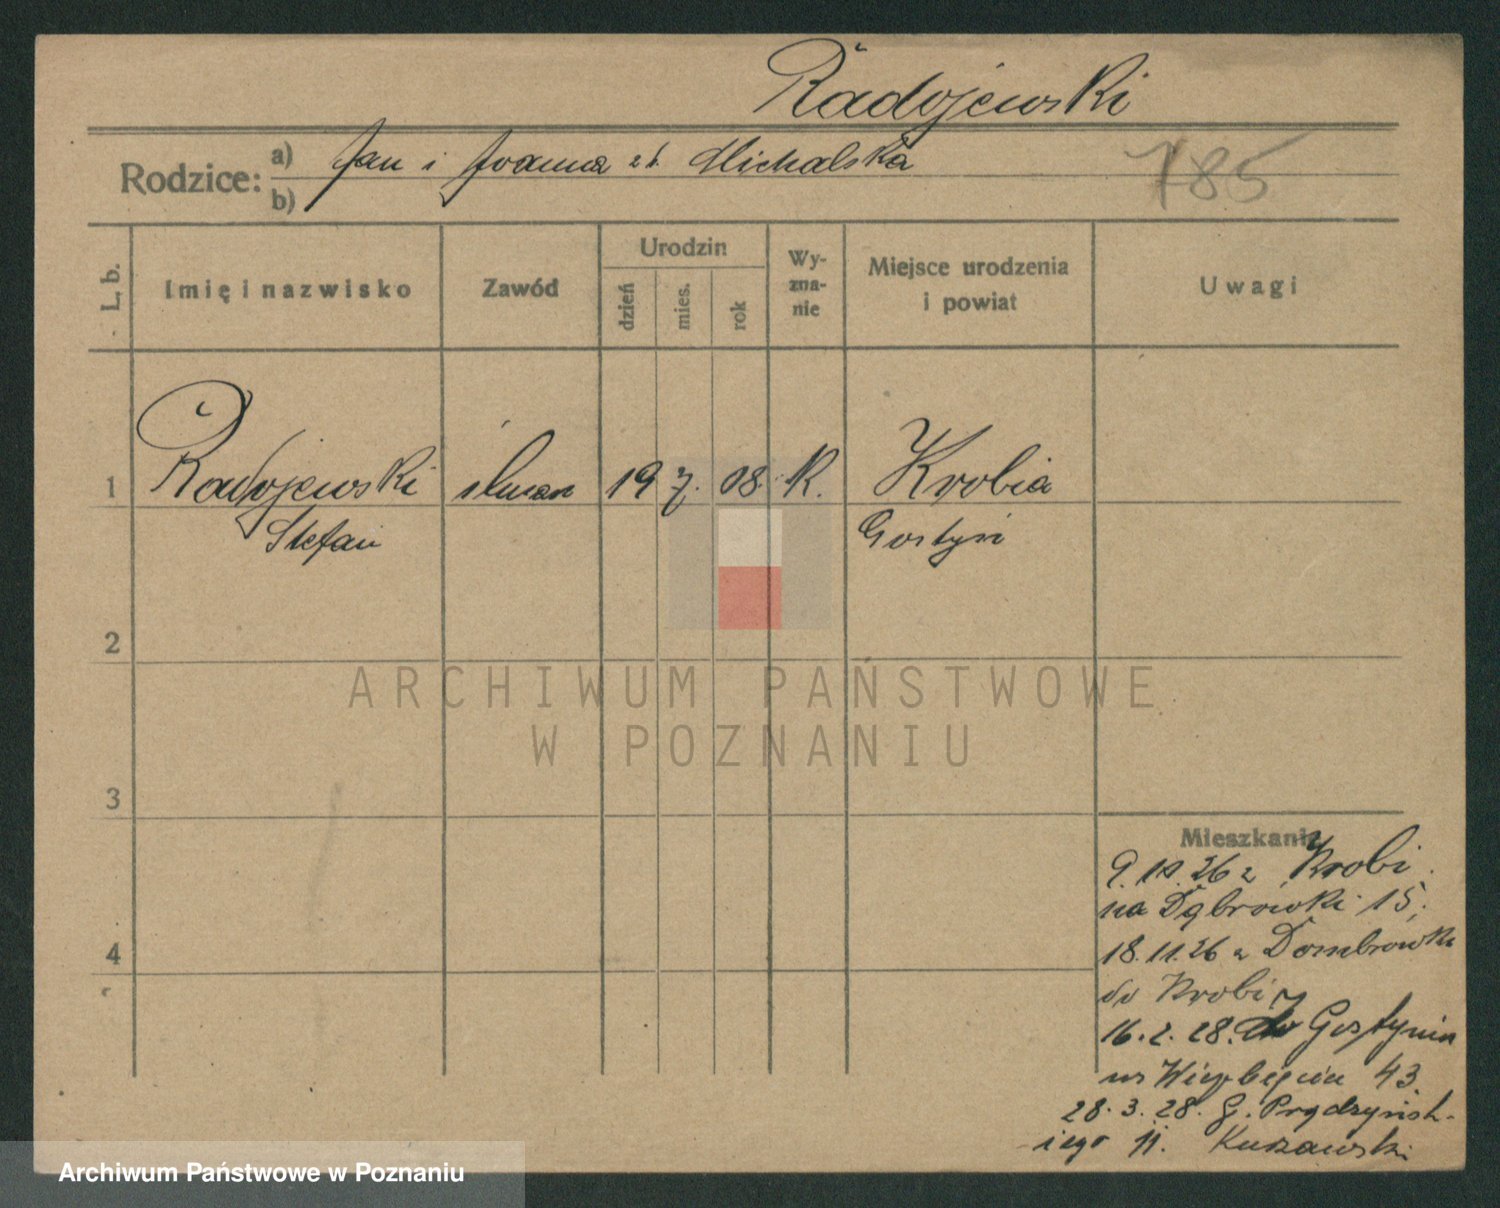 Radojewski
Rodzice: a) Jan i Joanna zd. Michalska 785
b)
L. b. Imię i nazwisko Zawód Urodzin dzień mies. rok Wy-zna-nie Miejsce urodzenia i powiat Uwagi
1 Radojewski ślusarz 19 7. 08. K. Krobia
Stefan Gostyń
2
ARCHIWUM PAŃSTWOWE
W POZNANIU
3
Mieszkanie
9. 10. 26 z Krobi
na Dąbrowki 15,
4
18. 11. 26 z Dombrowki
do Krobi
16. 2. 28. do Gostynia
43
28. 3. 28. G. Prądzyńsk-
iego 11.
Archiwum Państwowe w Poznaniu